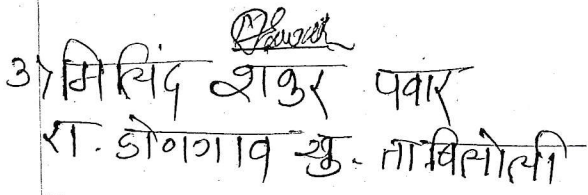 3) मिलिंद शंकर पवार
रा. डोणगाव खु. ता बिलोली